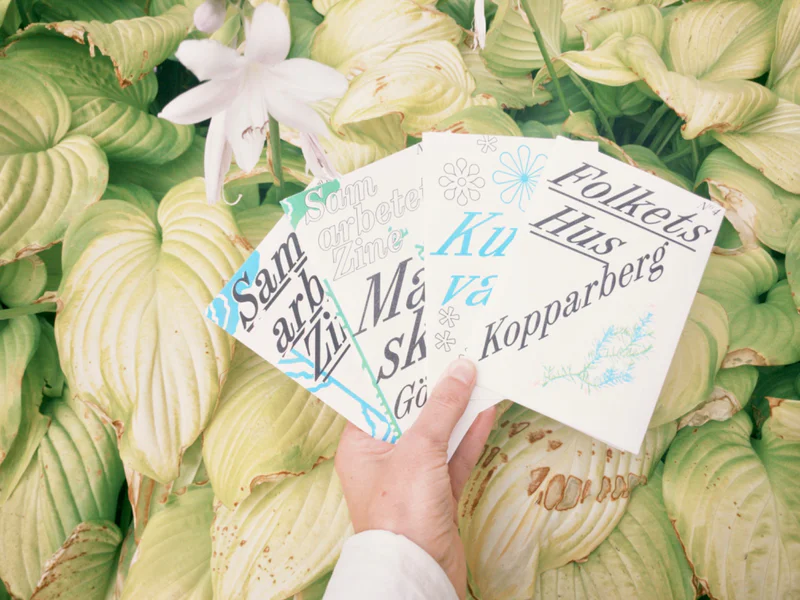 Sam
arb
Zi
Sam
arbetet
Zine
Ma
sk
Gö
Ku
va
Folkets
Hus
Kopparberg
Nº4